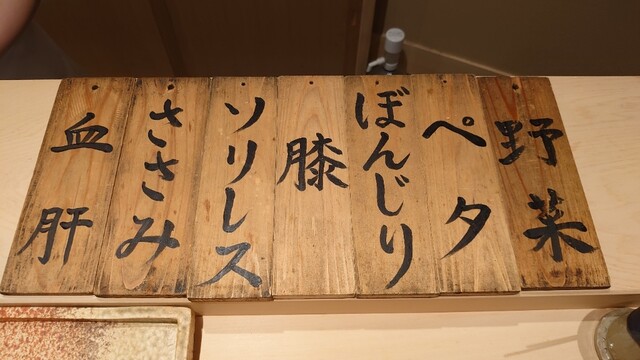 野菜
ペタ
ぼんじり
膝
ソリレス
ささみ
血肝